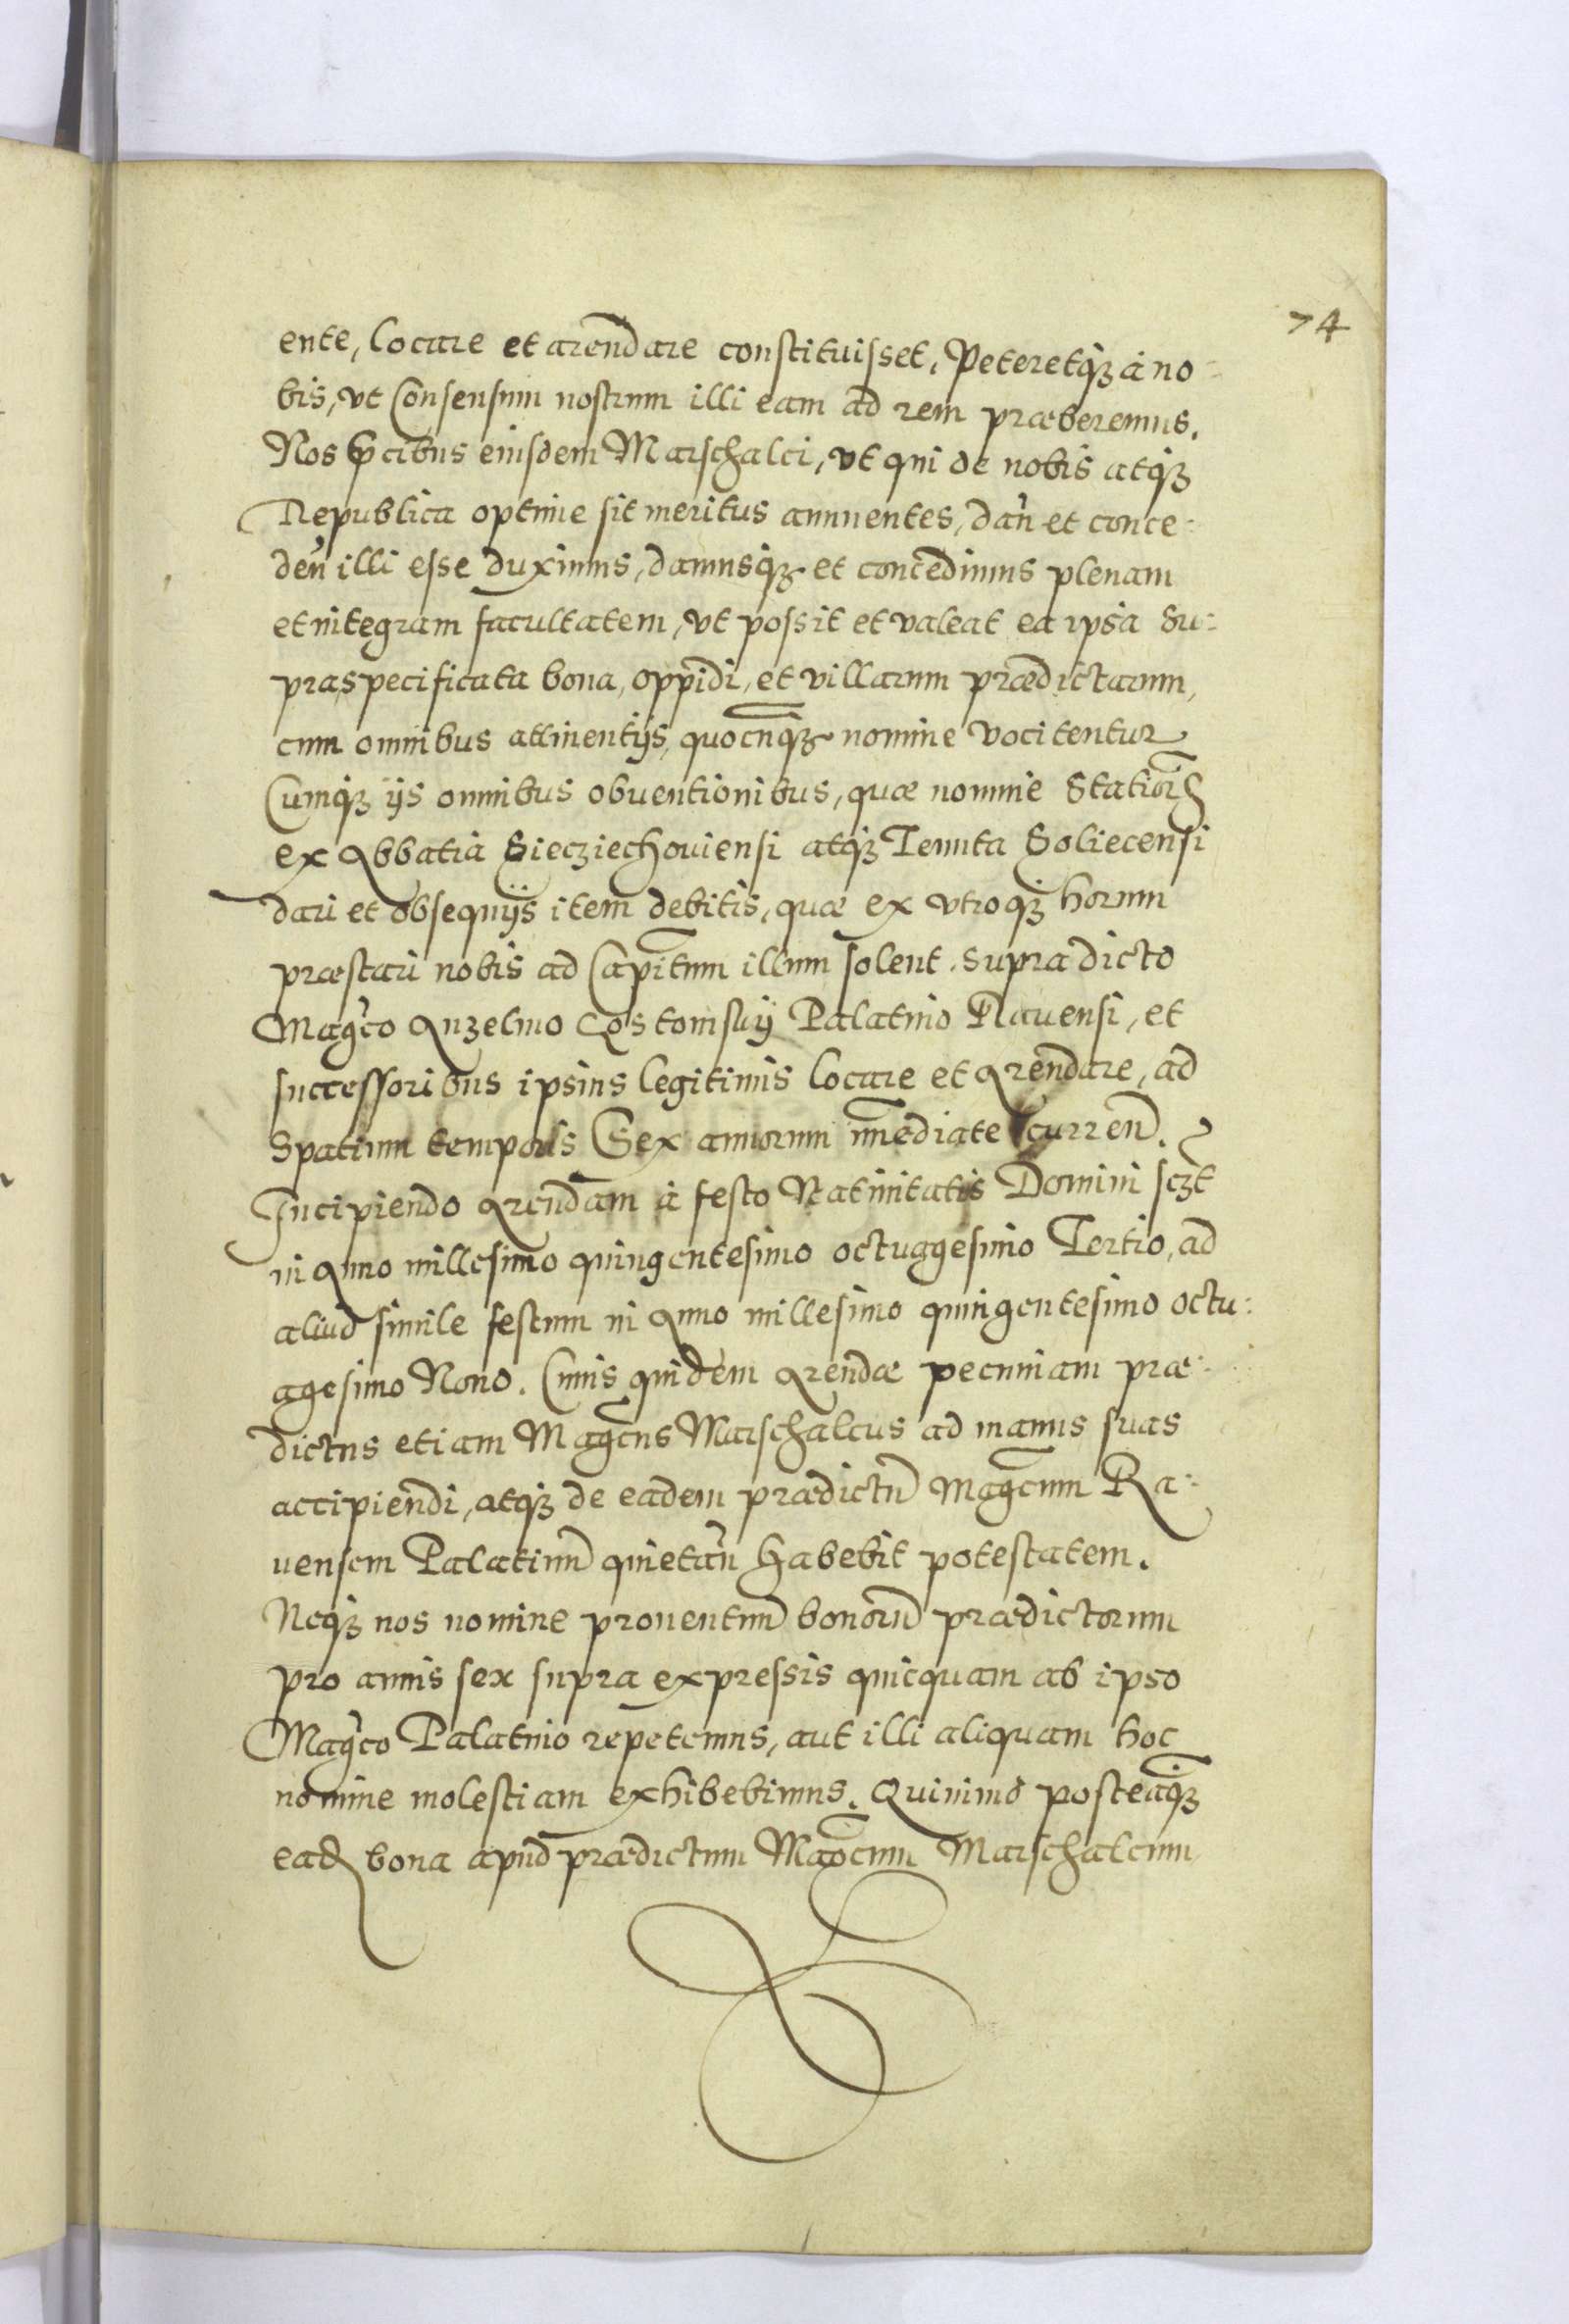 74
ente, locare et arendare constituisset, Peteretq̃ȝ à no:
bis, vt Consensum nostrum illi eam ad rem præberemus.
Nos p̃cibus eiusdem Marschalci, vt qui de nobis atq̃ȝ
Republica optime sit meritus annuentes, dan̄ et conce:
den̄ illi esse duximus, damusq̃ȝ et concedimus plenam
et integram facultatem, vt possit et valeat ea ipsa su:
praspecificata bona, oppidi, et villarum prædictarum,
cum omnibus attinentijs, quocunq̃ȝ nomine vocitentur
Cumq̃ȝ ijs omnibus obuentionibus, quæ nomine Station̄
ex Abbatia Siecziechouiensi atq̃ȝ Tenuta Soliecensi
dari et obsequijs item debitis, quæ ex vtroq̃ȝ horum
præstari nobis ad Capitum illum solent. supradicto
Mag̃co Anzelmo Gostomsky Palatino Rauensi, et
successoribus ipsius legitimis locare et Arendare, ad
Spatium temporis Sex annorum im̄ediate curren̄.
Incipiendo Arendam à festo Natiuitatis Domini sczt
in Anno millesimo quingentesimo octuagesimo Tertio, ad
aliud simile festum in Anno millesimo quingentesimo octu:
agesimo Nono. Cuius quidem Arendæ pecuniam præ:
dictus etiam Mag̃cus Marschalcus ad manus suas
accipiendi, atq̃ȝ de eadem prædictū Mag̃cum Ra:
uensem Palatinū quietan̄ habebit potestatem.
Neq̃ȝ nos nomine prouentuū bonorū prædictorum
pro annis sex supra expressis quicquam ab ipso
Mag̃co Palatino repetemus, aut illi aliquam hoc
nomine molestiam exhibebimus. Quinimo posteaq̃ȝ
ead̃ bona apud prædictum Mag̃cum Marschalcum